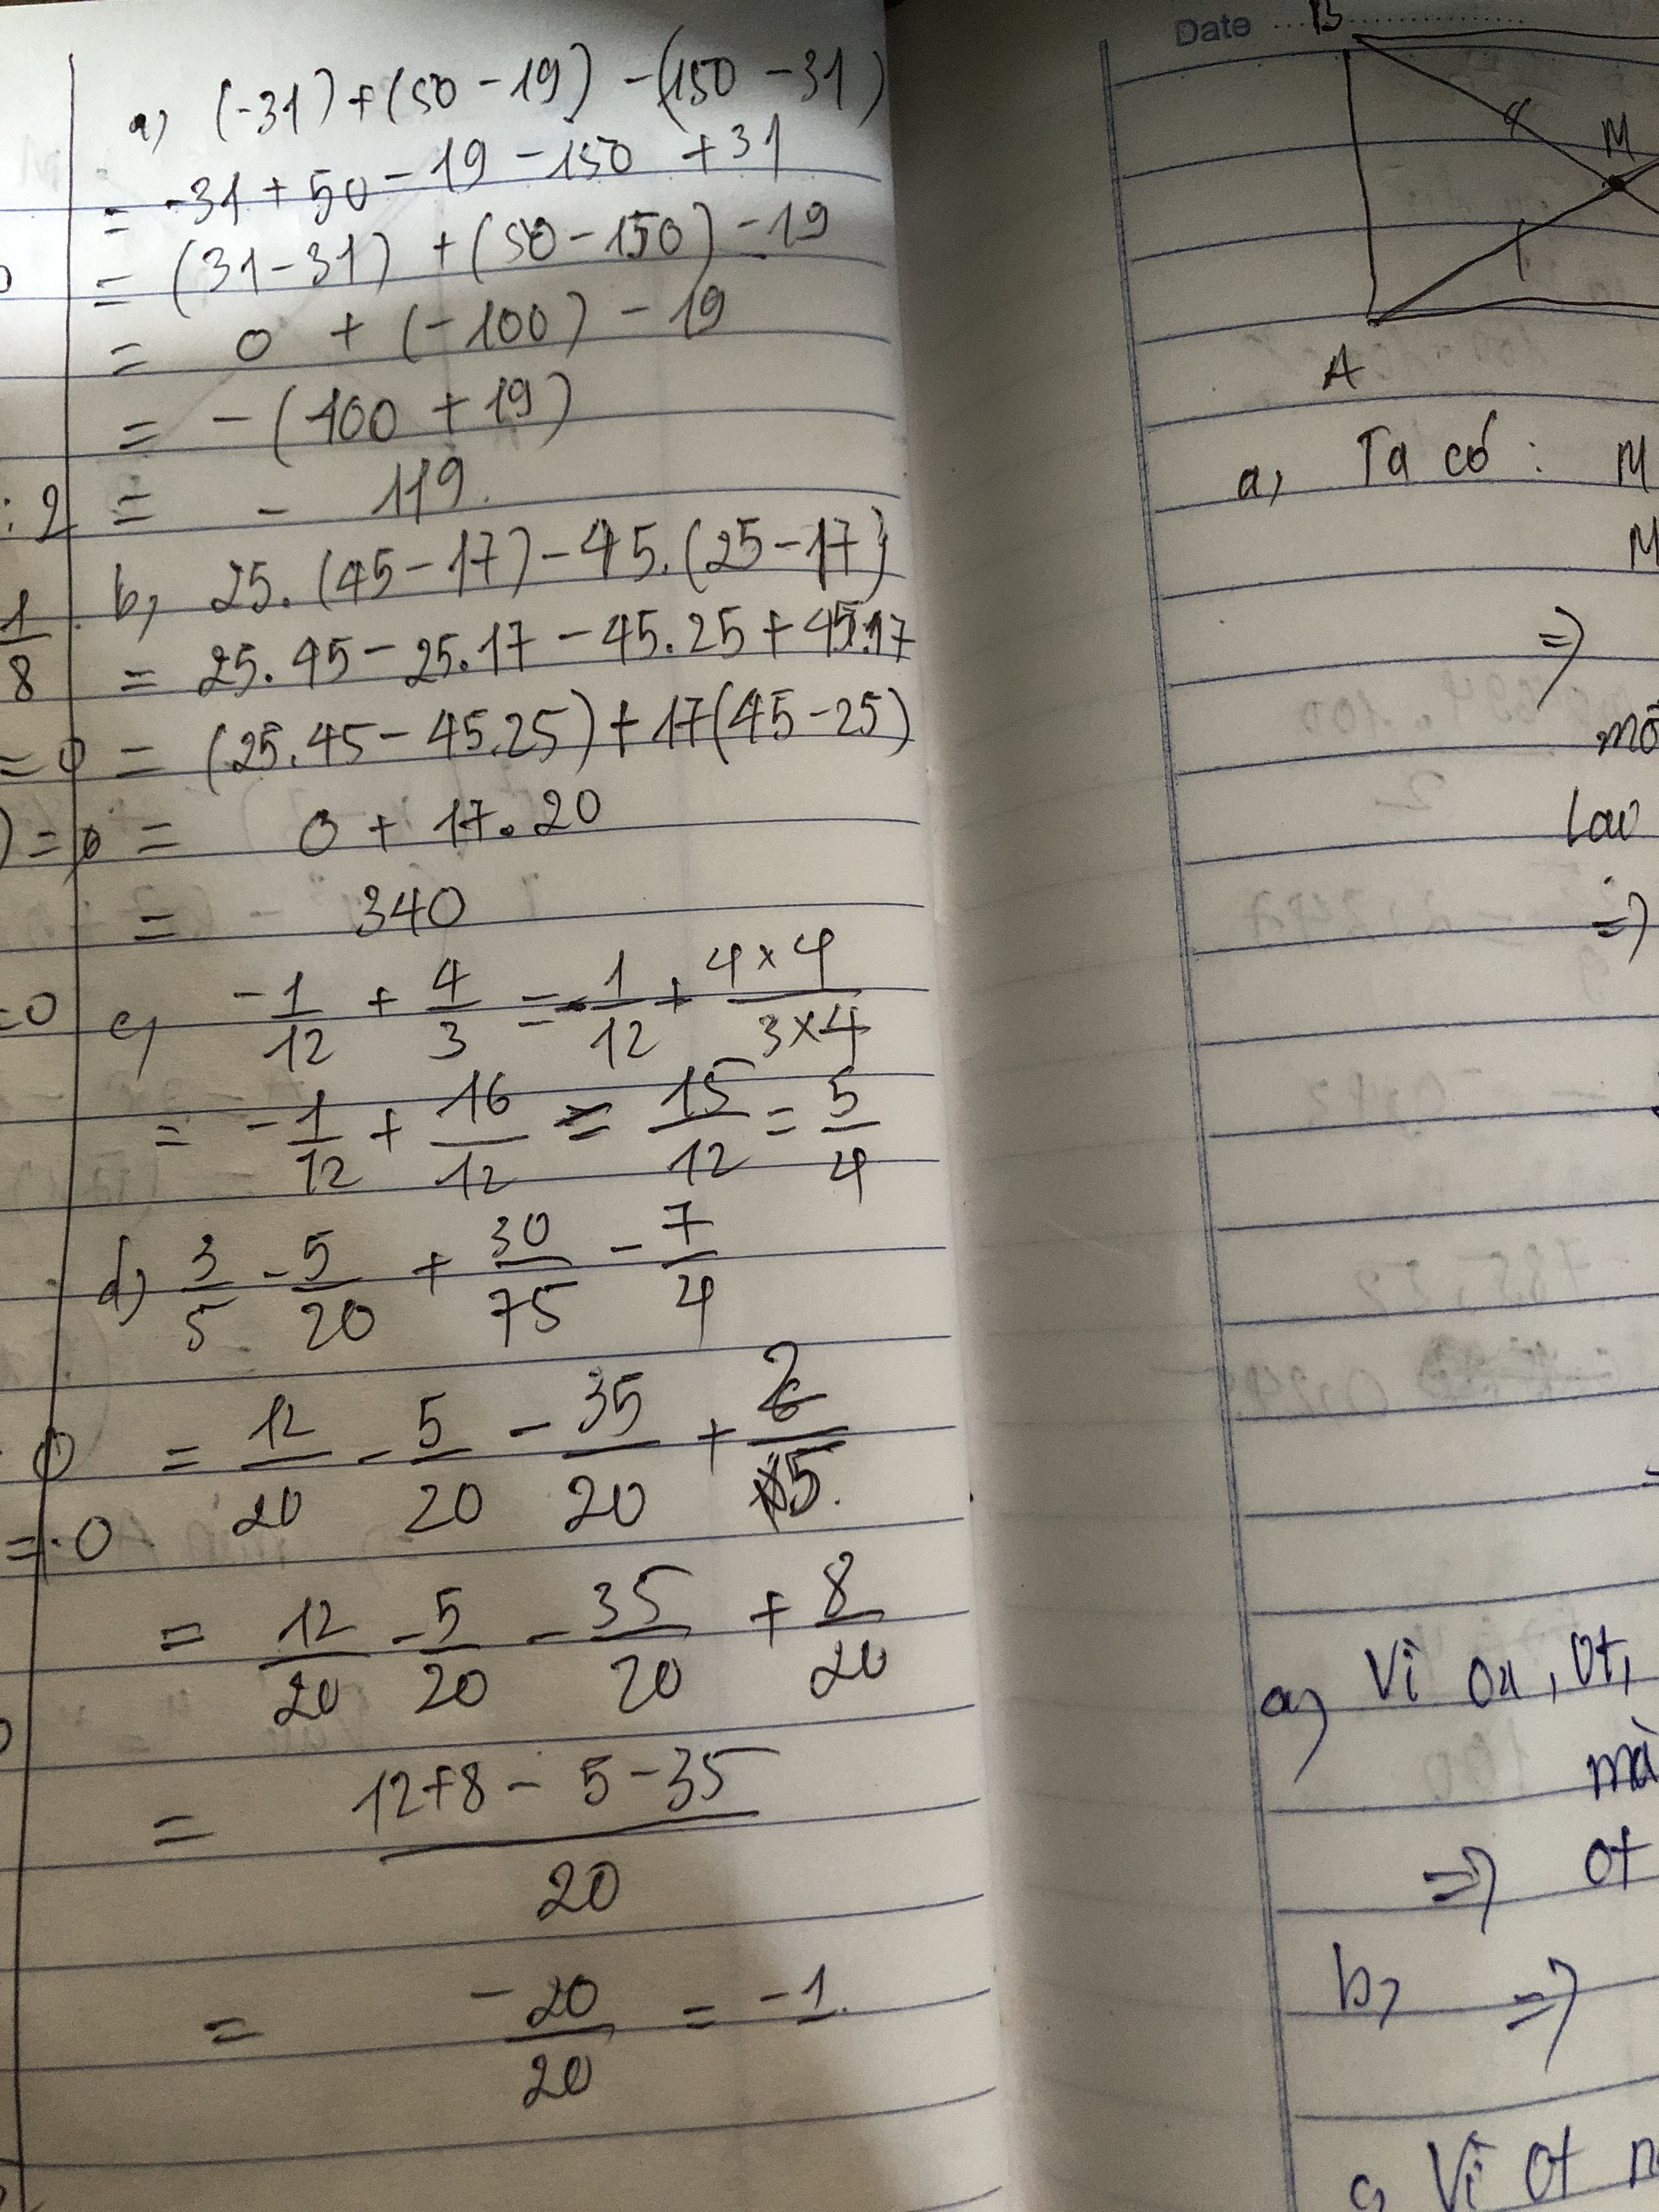 a, (-31) + (50 - 19) - (150 - 31)
= -31 + 50 - 19 - 150 + 31
= (31 - 31) + (50 - 150) - 19
= 0 + (-100) - 19
= - (100 + 19)
: 2 = - 119.
b, 25.(45 - 17) - 45.(25 - 17)
1/8 = 25.45 - 25.17 - 45.25 + 45.17
= 0 = (25.45 - 45.25) + 17(45 - 25)
) = 0 = 0 + 17.20
= 340
=0 c, -1/12 + 4/3 = -1/12 + 4×4/3×4
= -1/12 + 16/12 = 15/12 = 5/4
d, 3/5 - 5/20 + 30/75 - 7/4
0 = 12/20 - 5/20 - 35/20 + 2/5.
= 0
= 12/20 - 5/20 - 35/20 + 8/20
= 12+8 - 5 - 35/20
= -20/20 = -1.
Date
B
M
A
a, Ta có : M
M
=>
=>
a, Vì Ox, Ot,
mà
=> Ot
b, =>
c, Vì Ot n